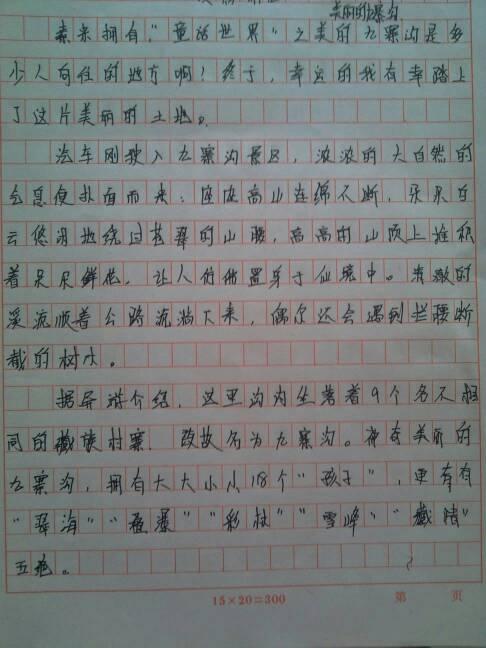 美丽的九寨沟
素来拥有“童话世界”之美的九寨沟是多
少人向往的地方啊！终于，幸运的我有幸踏上
了这片美丽的土地。
汽车刚驶入九寨沟景区，浓浓的大自然的
气息便扑面而来：座座高山连绵不断，朵朵白
云悠闲地绕过苍翠的山腰，高高的山顶上堆积
着朵朵鲜花，让人仿佛置身于仙境中。清澈的
溪流顺着公路流淌下来，偶尔还会遇到拦腰断
截的树木。
据导游介绍，这里沟内坐落着9个各不相
同的藏族村寨，故故名为九寨沟。神奇美丽的
九寨沟，拥有大大小小18个“孩子”，更有有
“翠海”“叠瀑”“彩林”“雪峰”“藏情”
五绝。
15×20=300
第 页